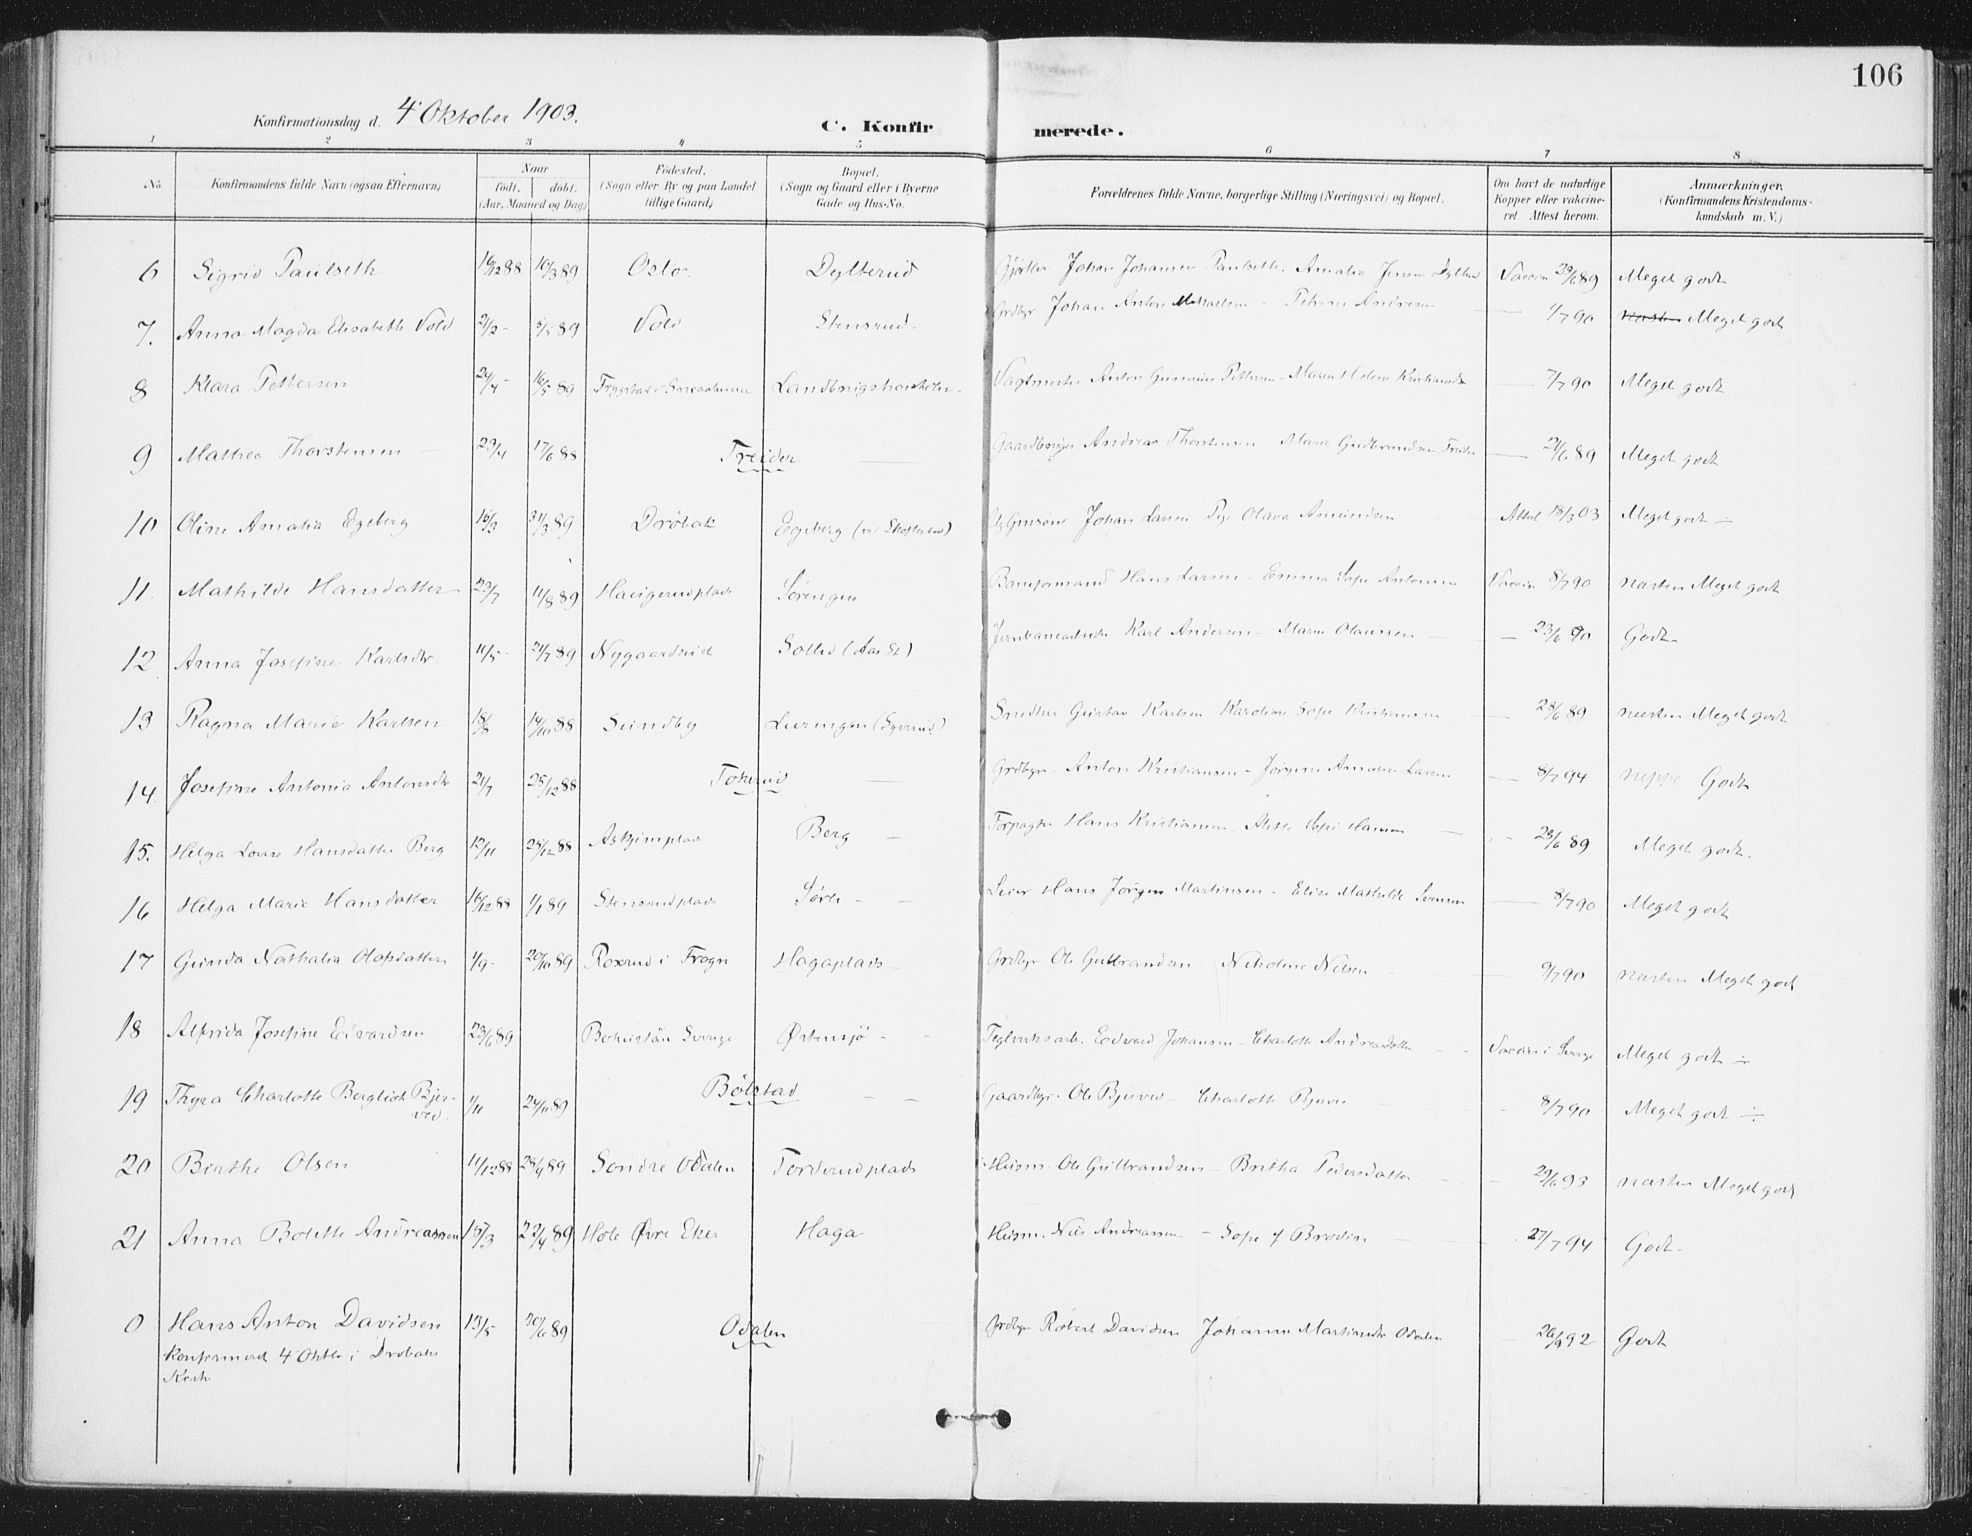 106
Konfirmationsdag d. 4' Oktober 1903.
C. Konfir merede.
1 2 3 4 5 6 7 8
No. Konfirmandens fulde Navn (ogsaa Efternavn) Naar født. døbt. (Aar, Maaned og Dag) Fødested. (Sogn eller By og paa Landet tillige Gaard) Bopæl. (Sogn og Gaard eller i Byerne Gade og Hus-No. Forældrenes fulde Navne, borgerlige Stilling (Næringsvei) og Bopæl. Om havt de naturlige Kopper eller vaccineret Attest herom. Anmærkninger, (Konfirmandens Kristendomskundskab m. V.)
6 Sigrid Paulseth 16/12 88 10/3 89 Oslo Dylterud Johan Johansen Paulseth. Amalie Jensen Vaccin 29/6 89 Meget godt
7. Anna Magda Elisabeth Vold 21/2 - 5/5 89 Vold Stensrud Grdbr Johan Anton Mikaelsen - Petrine Andresen 1/7 90 Meget godt
8 Klara Pettersen 24/4 - 16/5 89 Landbrugshøiskolen Vagtmester Anton Pettersen - Maren Helene 7/7 90 Meget godt
9 Mathea Thorstensen 23/4 17/6 88 Treider Gaardbruger Andreas Thorstensen - Marie Gudbrandsen 21/6 89 Meget godt
10 Oline Amalia Egeberg 15/3 31/3 89 Drøbak Egeberg Johan Larsen Pige Olava Asmundsen Attest 18/3 03 Meget godt ÷
11. Mathilde Hansdatter 23/7 11/8 89 Haugerudplads Sørengen Hans Larsen - Emma Sofie Antonsen Vaccin 8/7 90 næsten Meget godt
12. Anna Josefine Karlsdtr 10/5 - 21/7 89 Nygaardseie Solli (Aas St) Jernbanearbeider Karl Andersen - Maren Olaussen 23/6 90 Godt
13 Ragna Marie Karlsen 18/8 14/10 88 Sundby (Syverud) Snedker Gustav Karlsen Karoline Sofie Kristiansen 28/6 89 næsten Meget godt
14. Josefine Antonia Antonsdtr 21/7 25/12 88 Tokerud Grdbgr. Anton Kristiansen - Jørgine Amalie Larsen 8/7 94 neppe Godt
15. Helga Lovise Hansdatter Berg 12/11 25/12 88 Askjimplads Berg Forpagter Hans Kristiansen Sofie Hansen 28/6 89 Meget godt.
16 Helga Marie Hansdatter 16/12 88 1/1 89 Stensrudplads Leier Hans Jørgen Martinsen - Elise Mathilde Sørensen 8/7 90 Meget godt
17 Gunda Nathalia Olafsdatter 1/9 - 20/10 89 Roxrud i Frogn Hagaplads Grdbgr Ole Gulbrandsen Nikoline Nilsen 9/7 90 næsten Meget godt
18 Alfrida Josefine Edvardsen 23/6 89 Bohuslän Sverige Østensjø Teglverksarb. Edvard Johansen - Charlotte Andreasdatter Vaccin i Sverige Meget godt ÷
19 Thyra Charlotte Bergliot Bjerved. 1/11 24/11 89 Bølstad Gaardbgr. Ole Bjerved - Charlotte Bjerved 8/7 90 Meget godt ÷
20 Berthe Olsen 11/12 88 28/4 89 Søndre Odalen Torderudplads Husm. Ole Gulbrandsen - Britha Pedersdatter 29/6 93 næsten Meget godt
21 Anna Bolette Andreassen 15/3 22/4 89 Hole Øvre Eker Haga Husm. Nils Andreassen - Sofie 27/7 94 Godt
0 Hans Anton Davidsen 13/5 30/6 89 Odalen Grdbgr Robert Davidsen Johanne Martinsdtr Odalen 26/9 92 Godt
Konfirmeret 4' Oktbr i Drøbaks
Kirk